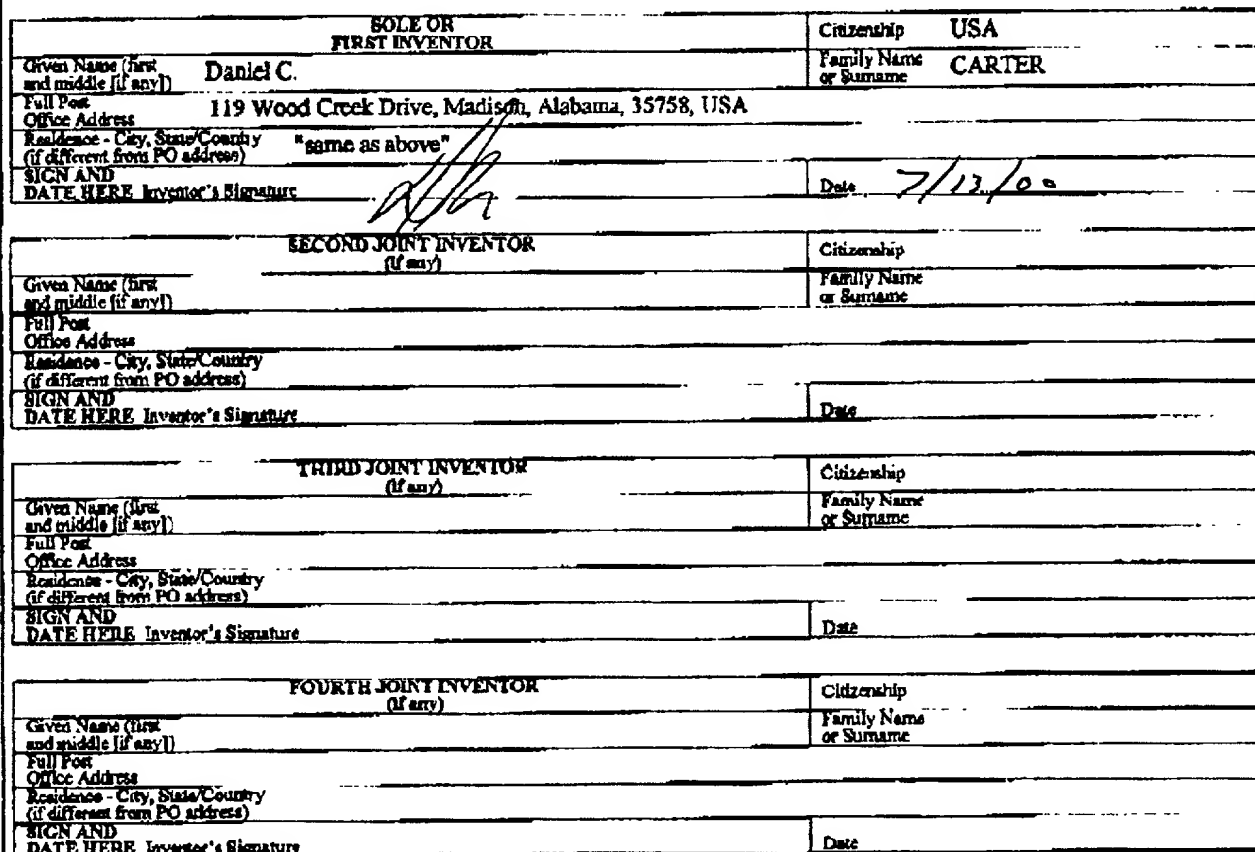 SOLE OR
FIRST INVENTOR
Citizenship USA
Given Name (first
and middle [if any]) Daniel C.
Family Name
or Surname CARTER
Full Post
Office Address 119 Wood Creek Drive, Madison, Alabama, 35758, USA
Residence - City, State/Country
(if different from PO address) "same as above"
SIGN AND
DATE HERE Inventor's Signature
Date 7/13/00
SECOND JOINT INVENTOR
(if any)
Citizenship
Given Name (first
and middle [if any])
Family Name
or Surname
Full Post
Office Address
Residence - City, State/Country
(if different from PO address)
SIGN AND
DATE HERE Inventor's Signature
Date
THIRD JOINT INVENTOR
(if any)
Citizenship
Given Name (first
and middle [if any])
Family Name
or Surname
Full Post
Office Address
Residence - City, State/Country
(if different from PO address)
SIGN AND
DATE HERE Inventor's Signature
Date
FOURTH JOINT INVENTOR
(if any)
Citizenship
Given Name (first
and middle [if any])
Family Name
or Surname
Full Post
Office Address
Residence - City, State/Country
(if different from PO address)
SIGN AND
DATE HERE Inventor's Signature
Date